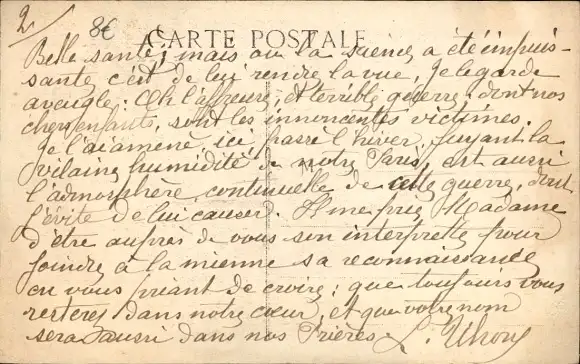 2 8€
CARTE POSTALE
Belle santé; mais où la science a été impuis-
sante, c'est de lui rendre la vue, je le garde
aveugle. Oh l'affreuse, et terrible guerre, dont nos
chers enfants, sont les innocentes victimes.
Je l'ai amené, ici, passé l'hiver, fuyant la
vilaine humidité de notre Paris, et aussi
l'admosphère continuelle de cette guerre, dont
j'évite de lui causer. Il me prie Madame
d'être auprès de vous son interprette pour
joindre à la mienne sa reconnaissance
en vous priant de croire; que toujours vous
resterez dans notre cœur, et que votre nom
sera aussi dans nos Prières. L.